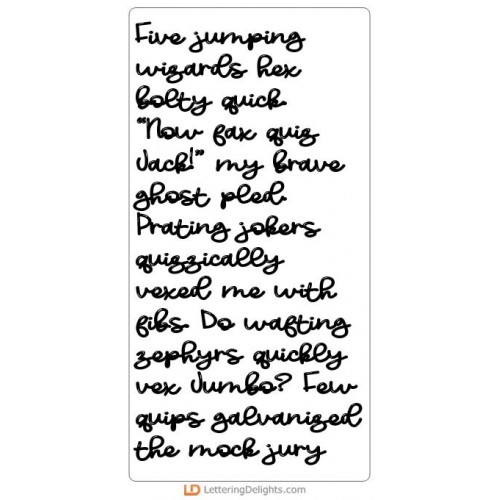 Five jumping
wizards hex
bolty quick.
"Now fax quiz
Jack!" my brave
ghost pled.
Prating jokers
quizzically
vexed me with
fibs. Do wafting
zephyrs quickly
vex Jumbo? Few
quips galvanized
the mock jury
LD LetteringDelights.com